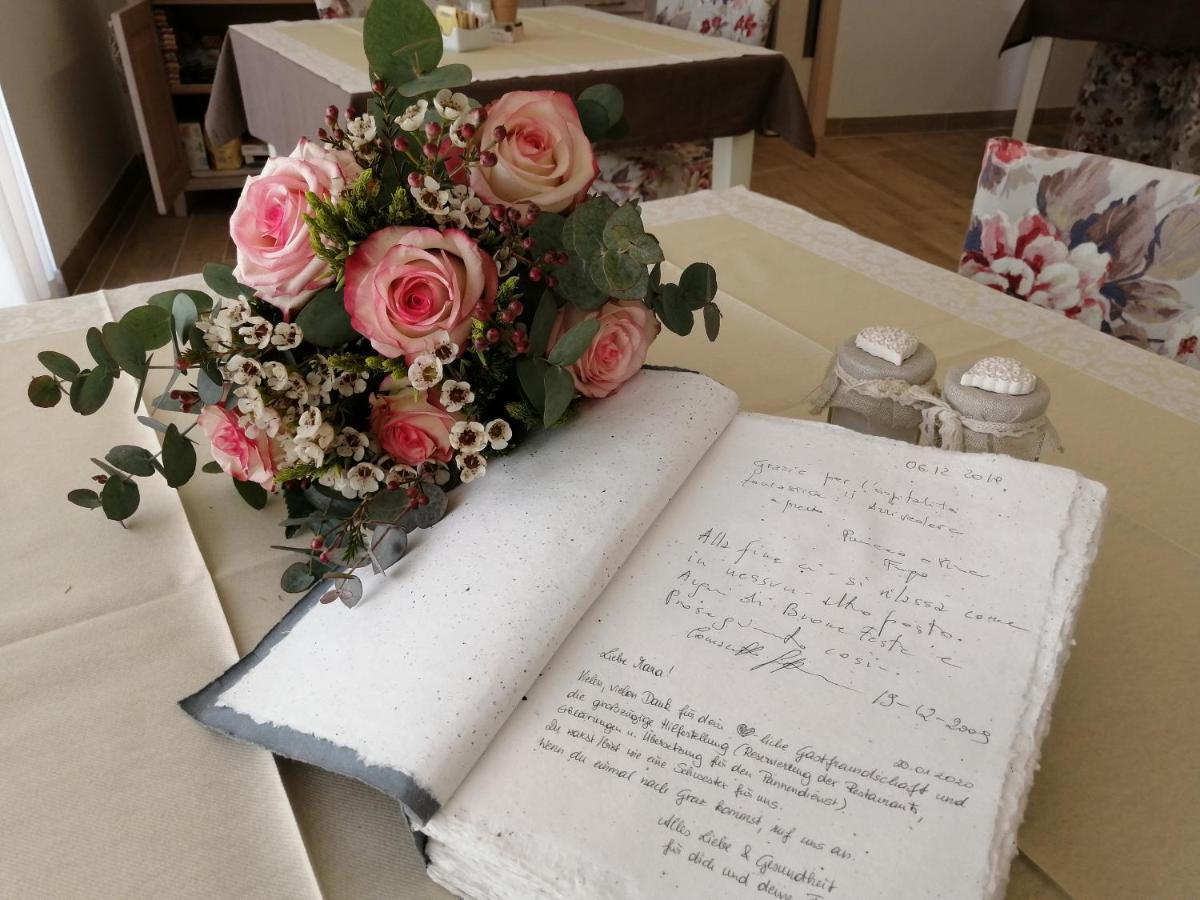 06.12 2019.
Grazie per l'ospitalità
fantastica !! Arrivederci
a presto
Alla fine ci si rilassa come
in nessun altro posto.
Auguri di Buone Feste e
Proseguimento così.
19-12-2009
Liebe Mara!
20.01.2020
Vielen, vielen Dank für dein ♥ liche Gastfreundschaft und
die großzügige Hilfestellung (Reservierung der Restaurants,
Erklärungen u. Übersetzung für den Pannendienst).
Du warst/bist wie eine Schwester für uns.
Wenn du einmal nach Graz kommst, ruf uns an.
Alles Liebe & Gesundheit
für dich und deine